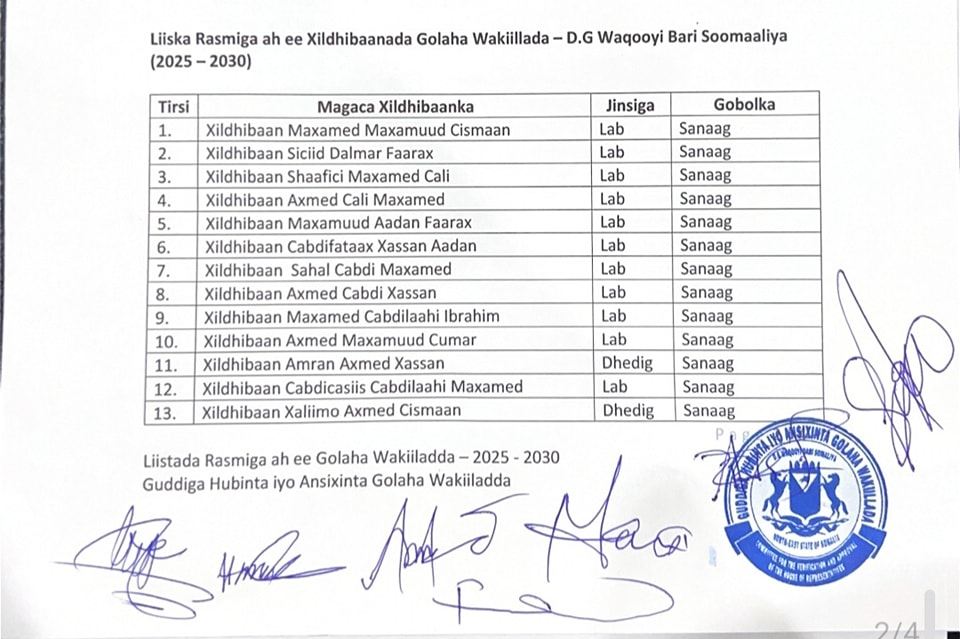 Liiska Rasmiga ah ee Xildhibaanada Golaha Wakiillada – D.G Waqooyi Bari Soomaaliya
(2025 – 2030)
Tirsi Magaca Xildhibaanka Jinsiga Gobolka
1. Xildhibaan Maxamed Maxamuud Cismaan Lab Sanaag
2. Xildhibaan Siciid Dalmar Faarax Lab Sanaag
3. Xildhibaan Shaafici Maxamed Cali Lab Sanaag
4. Xildhibaan Axmed Cali Maxamed Lab Sanaag
5. Xildhibaan Maxamuud Aadan Faarax Lab Sanaag
6. Xildhibaan Cabdifataax Xassan Aadan Lab Sanaag
7. Xildhibaan Sahal Cabdi Maxamed Lab Sanaag
8. Xildhibaan Axmed Cabdi Xassan Lab Sanaag
9. Xildhibaan Maxamed Cabdilaahi Ibrahim Lab Sanaag
10. Xildhibaan Axmed Maxamuud Cumar Lab Sanaag
11. Xildhibaan Amran Axmed Xassan Dhedig Sanaag
12. Xildhibaan Cabdicasiis Cabdilaahi Maxamed Lab Sanaag
13. Xildhibaan Xaliimo Axmed Cismaan Dhedig Sanaag
Liistada Rasmiga ah ee Golaha Wakiiladda – 2025 - 2030
Guddiga Hubinta iyo Ansixinta Golaha Wakiiladda
GUDDIGA HUBINTA IYO ANSIXINTA GOLAHA WAKIILLADA
NORTH-EAST STATE OF SOMALIA
COMMITTEE FOR THE VERIFICATION AND APPROVAL
OF THE HOUSE OF REPRESENTATIVES
2/4